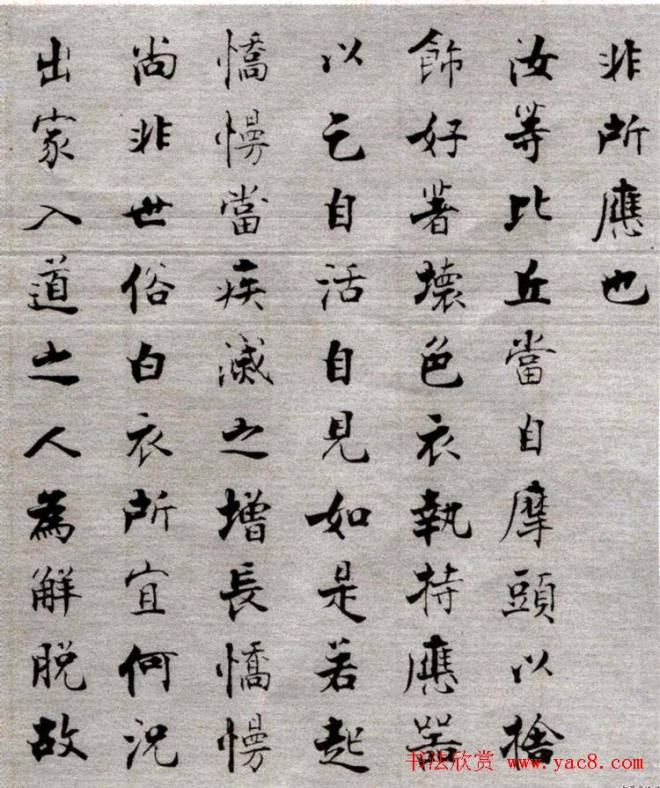 非所應也
汝等比丘當自摩頭以捨
飾好著壞色衣執持應器
以乞自活自見如是若起
憍慢當疾滅之增長憍慢
尚非世俗白衣所宜何況
出家入道之人為解脫故
书法欣赏 www.yac8.com